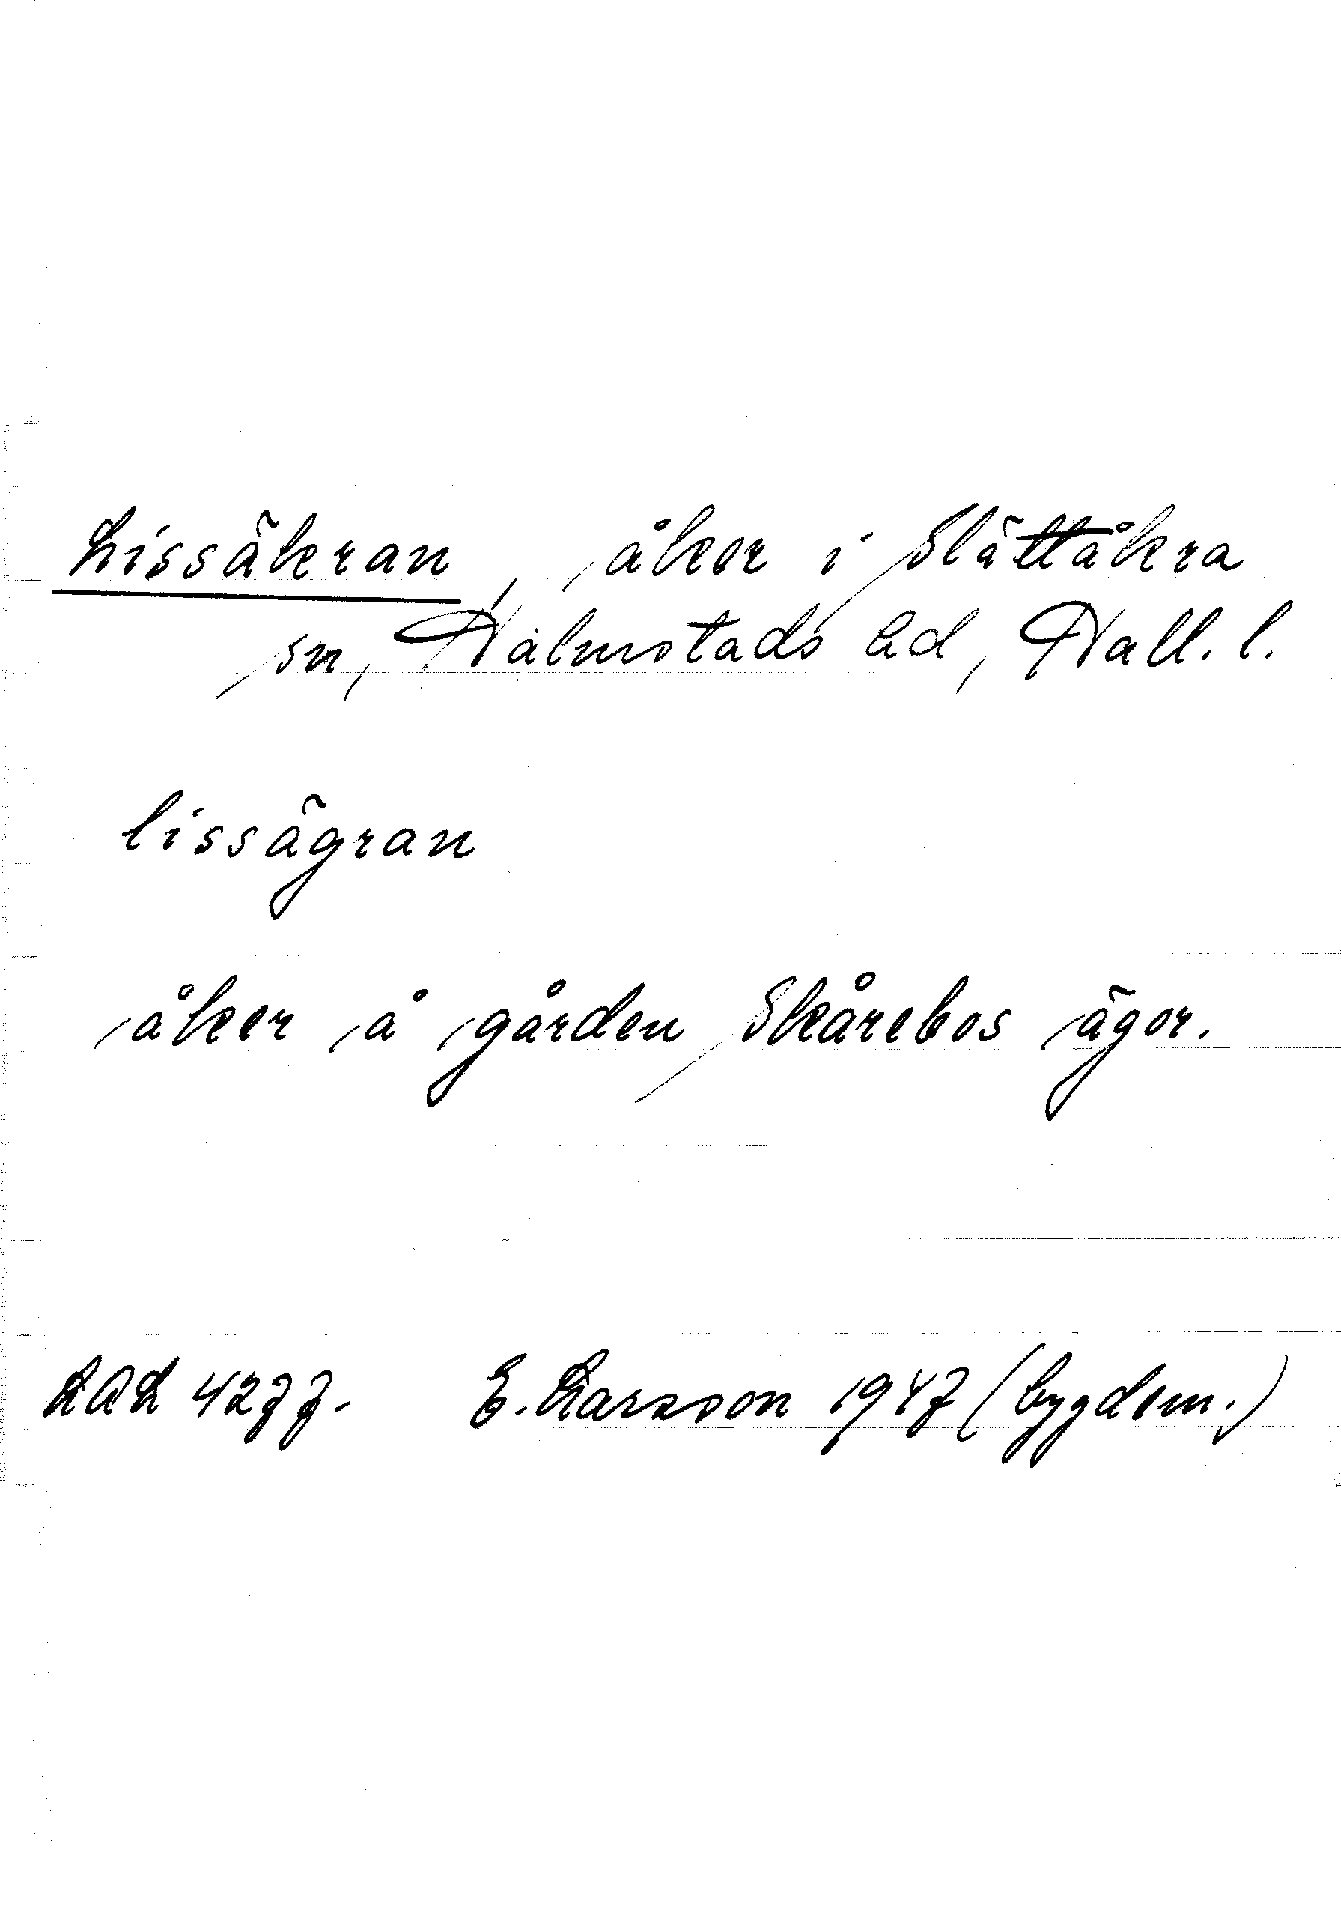 Lissäkran, åker i Slättåkra
sn, Halmstads hd, Hall. l.
lissägran
åker å gården Skårebos ägor.
LAL 4277. E. Larsson 1947 (bygdem.)